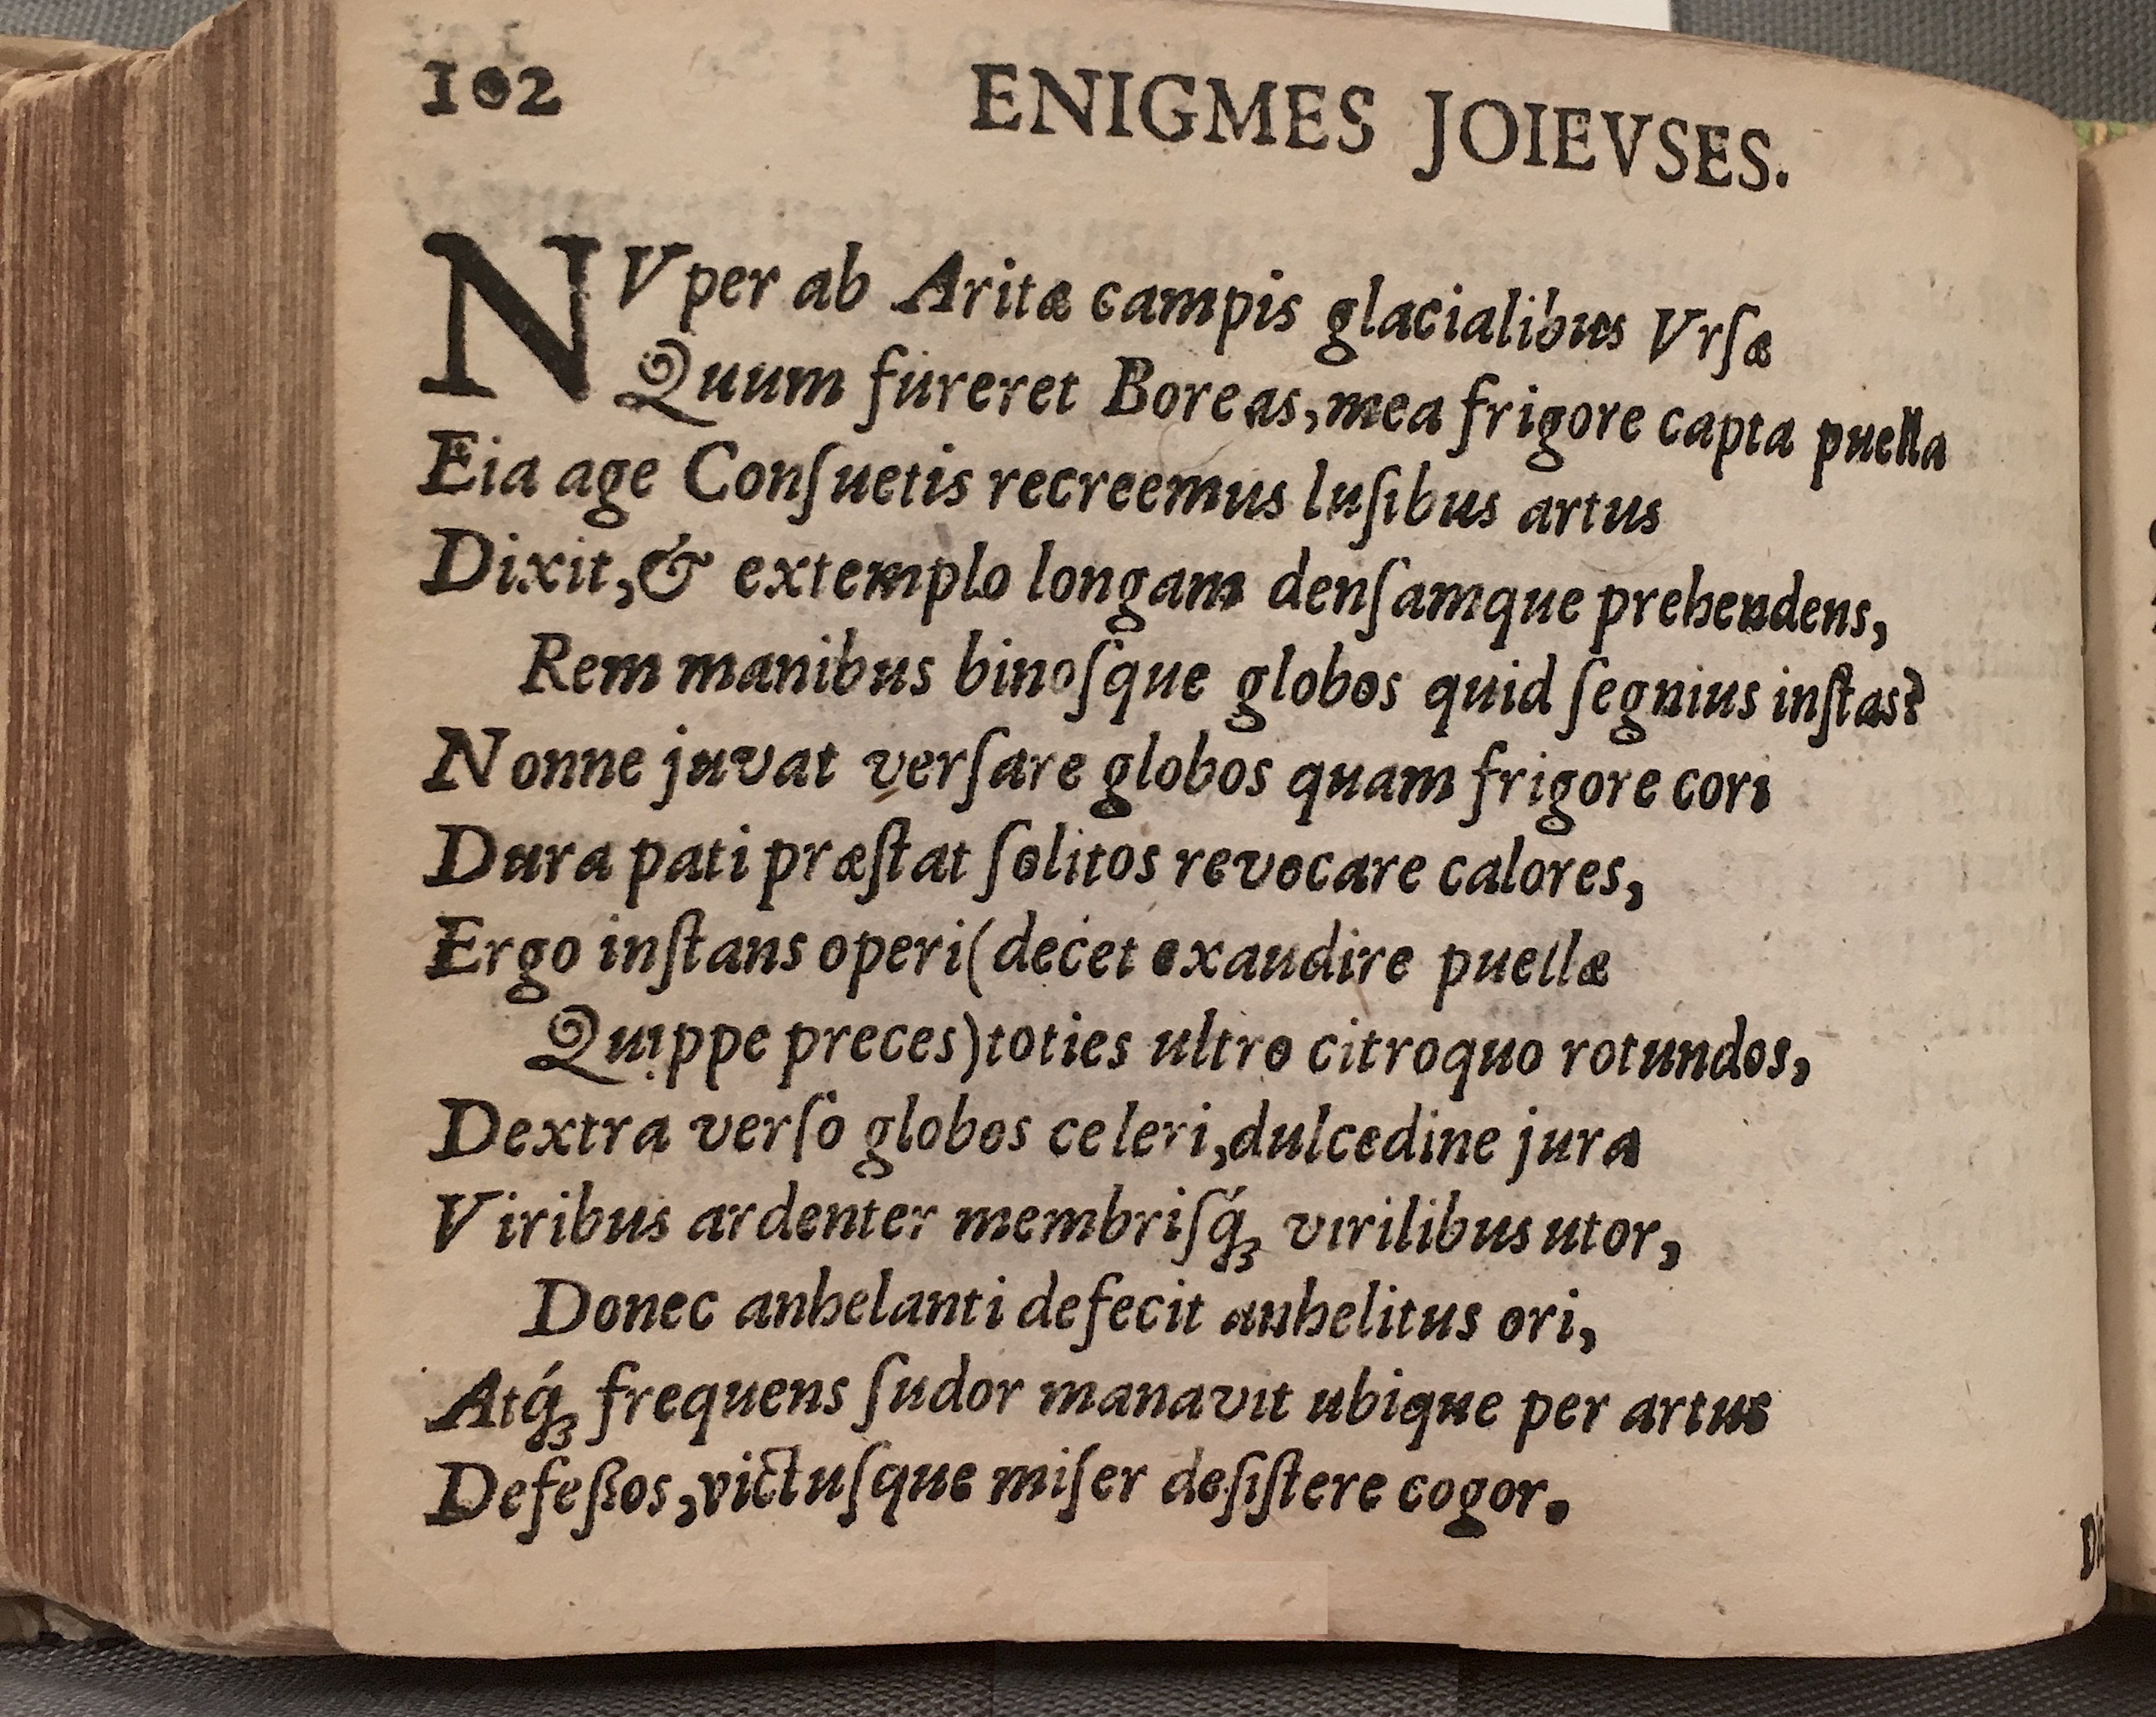 102 ENIGMES JOIEVSES.
NVper ab Aritæ campis glacialibus Vrſæ
Quum fureret Boreas, mea frigore capta puella
Eia age Conſuetis recreemus luſibus artus
Dixit, & extemplo longam denſamque prehendens,
Rem manibus binoſque globos quid ſegnius inſtas?
Nonne juvat verſare globos quam frigore cori
Dura pati præſtat ſolitos revocare calores,
Ergo inſtans operi (decet exaudire puellæ
Quippe preces) toties ultro citroquo rotundos,
Dextra verſo globos celeri, dulcedine jura
Viribus ardenter membriſq́ꝫ virilibus utor,
Donec anhelanti defecit anhelitus ori,
Atq́ꝫ frequens ſudor manavit ubique per artus
Defeßos, victuſque miſer deſiſtere cogor.